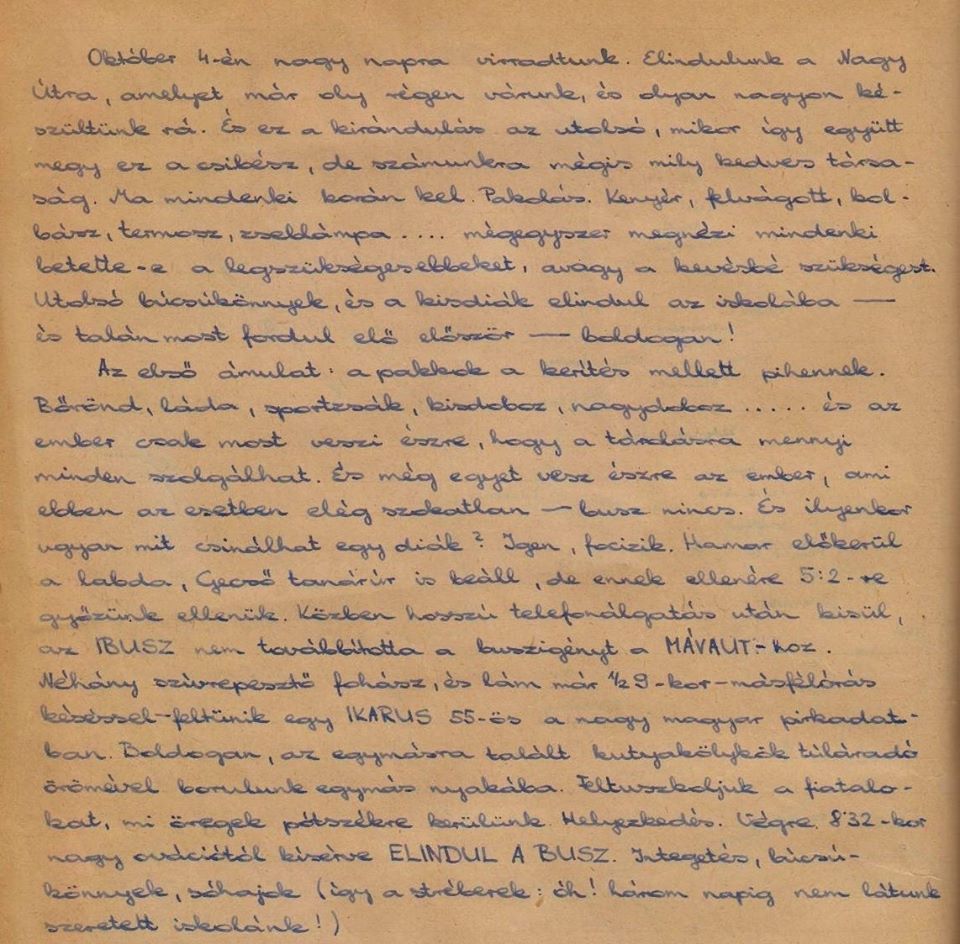 Október 4-én nagy napra virradtunk. Elindulunk a Nagy
Útra, amelyet már oly régen várunk, és olyan nagyon ké-
szültünk rá. És ez a kirándulás az utolsó, mikor így együtt
megy ez a csibész, de számunkra mégis mily kedves társa-
ság. Ma mindenki korán kel. Pakolás. Kenyér, felvágott, kol-
bász, termosz, zseblámpa .... mégegyszer megnézi mindenki
betette-e a legszükségesebbeket, avagy a kevésbé szükségest.
Utolsó búcsúkönnyek, és a kisdiák elindul az iskolába —
és talán most fordul elő először — boldogan!
Az első ámulat: a pakkok a kerítés mellett pihennek.
Bőrönd, láda, sportzsák, kisdoboz, nagydoboz ..... és az
ember csak most veszi észre, hogy a tárolásra mennyi
minden szolgálhat. És még egyet vesz észre az ember, ami
ebben az esetben elég szokatlan — busz nincs. És ilyenkor
ugyan mit csinálhat egy diák? Igen, focizik. Hamar előkerül
a labda, Gecső tanárúr is beáll, de ennek ellenére 5:2-re
győzünk ellenük. Közben hosszú telefonálgatás után kisül,
az IBUSZ nem továbbította a buszigényt a MÁVAUT-hoz.
Néhány szívrepesztő fohász, és lám már 1/2 9-kor-másfélórás
késéssel-feltünik egy IKARUS 55-ös a nagy magyar pirkadat-
ban. Boldogan, az egymásra talált kutyakölykök túláradó
örömével borulunk egymás nyakába. Feltuszkoljuk a fiatalo-
kat, mi öregek pótszékre kerülünk. Helyezkedés. Végre 8'32-kor
nagy ovációtól kísérve ELINDUL A BUSZ. Integetés, búcsú-
könnyek, sóhajok (így a stréberek: óh! három napig nem látunk
szeretett iskolánk!)